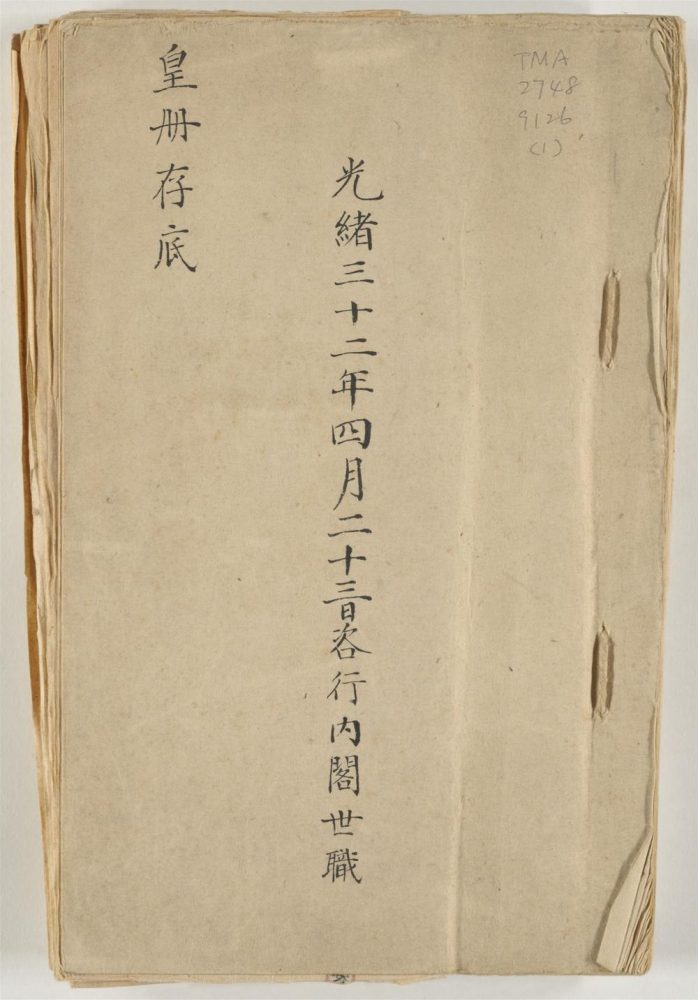 光緒三十二年四月二十三日咨行內閣世職
皇冊存底
TMA
2748
9126
(1)